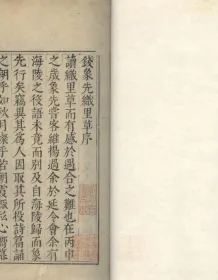 錢象先織里草序
讀織里草而有感於遇合之難也在丙申
之歲象先嘗客維揚過余於延令會余有
海陵之役語未竟而別及自海陵歸而象
先行矣竊異其為人因取其所投詩篇誦
之朗乎如秋月燦乎若朝霞